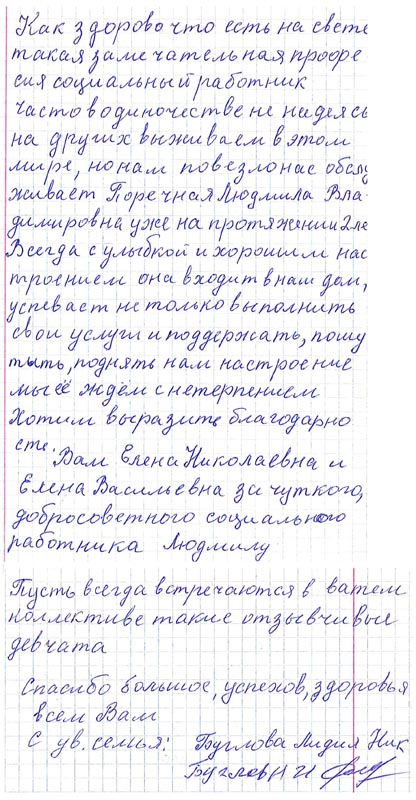 Как здорово что есть на свете
такая замечательная профе
сия социальный работник
часто в одиночестве не надеясь
на других выживаем в этом
мире, но нам повезло нас обслу
живает Поречная Людмила Вла
димировна уже на протяжении 2 ле
Всегда с улыбкой и хорошим нас
троением она входит в наш дом,
успевает не только выполнить
свои услуги и поддержать, пошу
тыть, поднять нам настроение
мы её ждём с нетерпением
Хотим выразить благодарно
сте.
Вам Елена Николаевна и
Елена Васильевна за чуткого,
добросоветного социального
работника Людмилу
Пусть всегда встречаются в вашем
коллективе такие отзывчивые
девчата
Спасибо большое, успехов, здоровья
всем Вам
С ув. семья: Буглова Лидия Ник
Буглов Н И